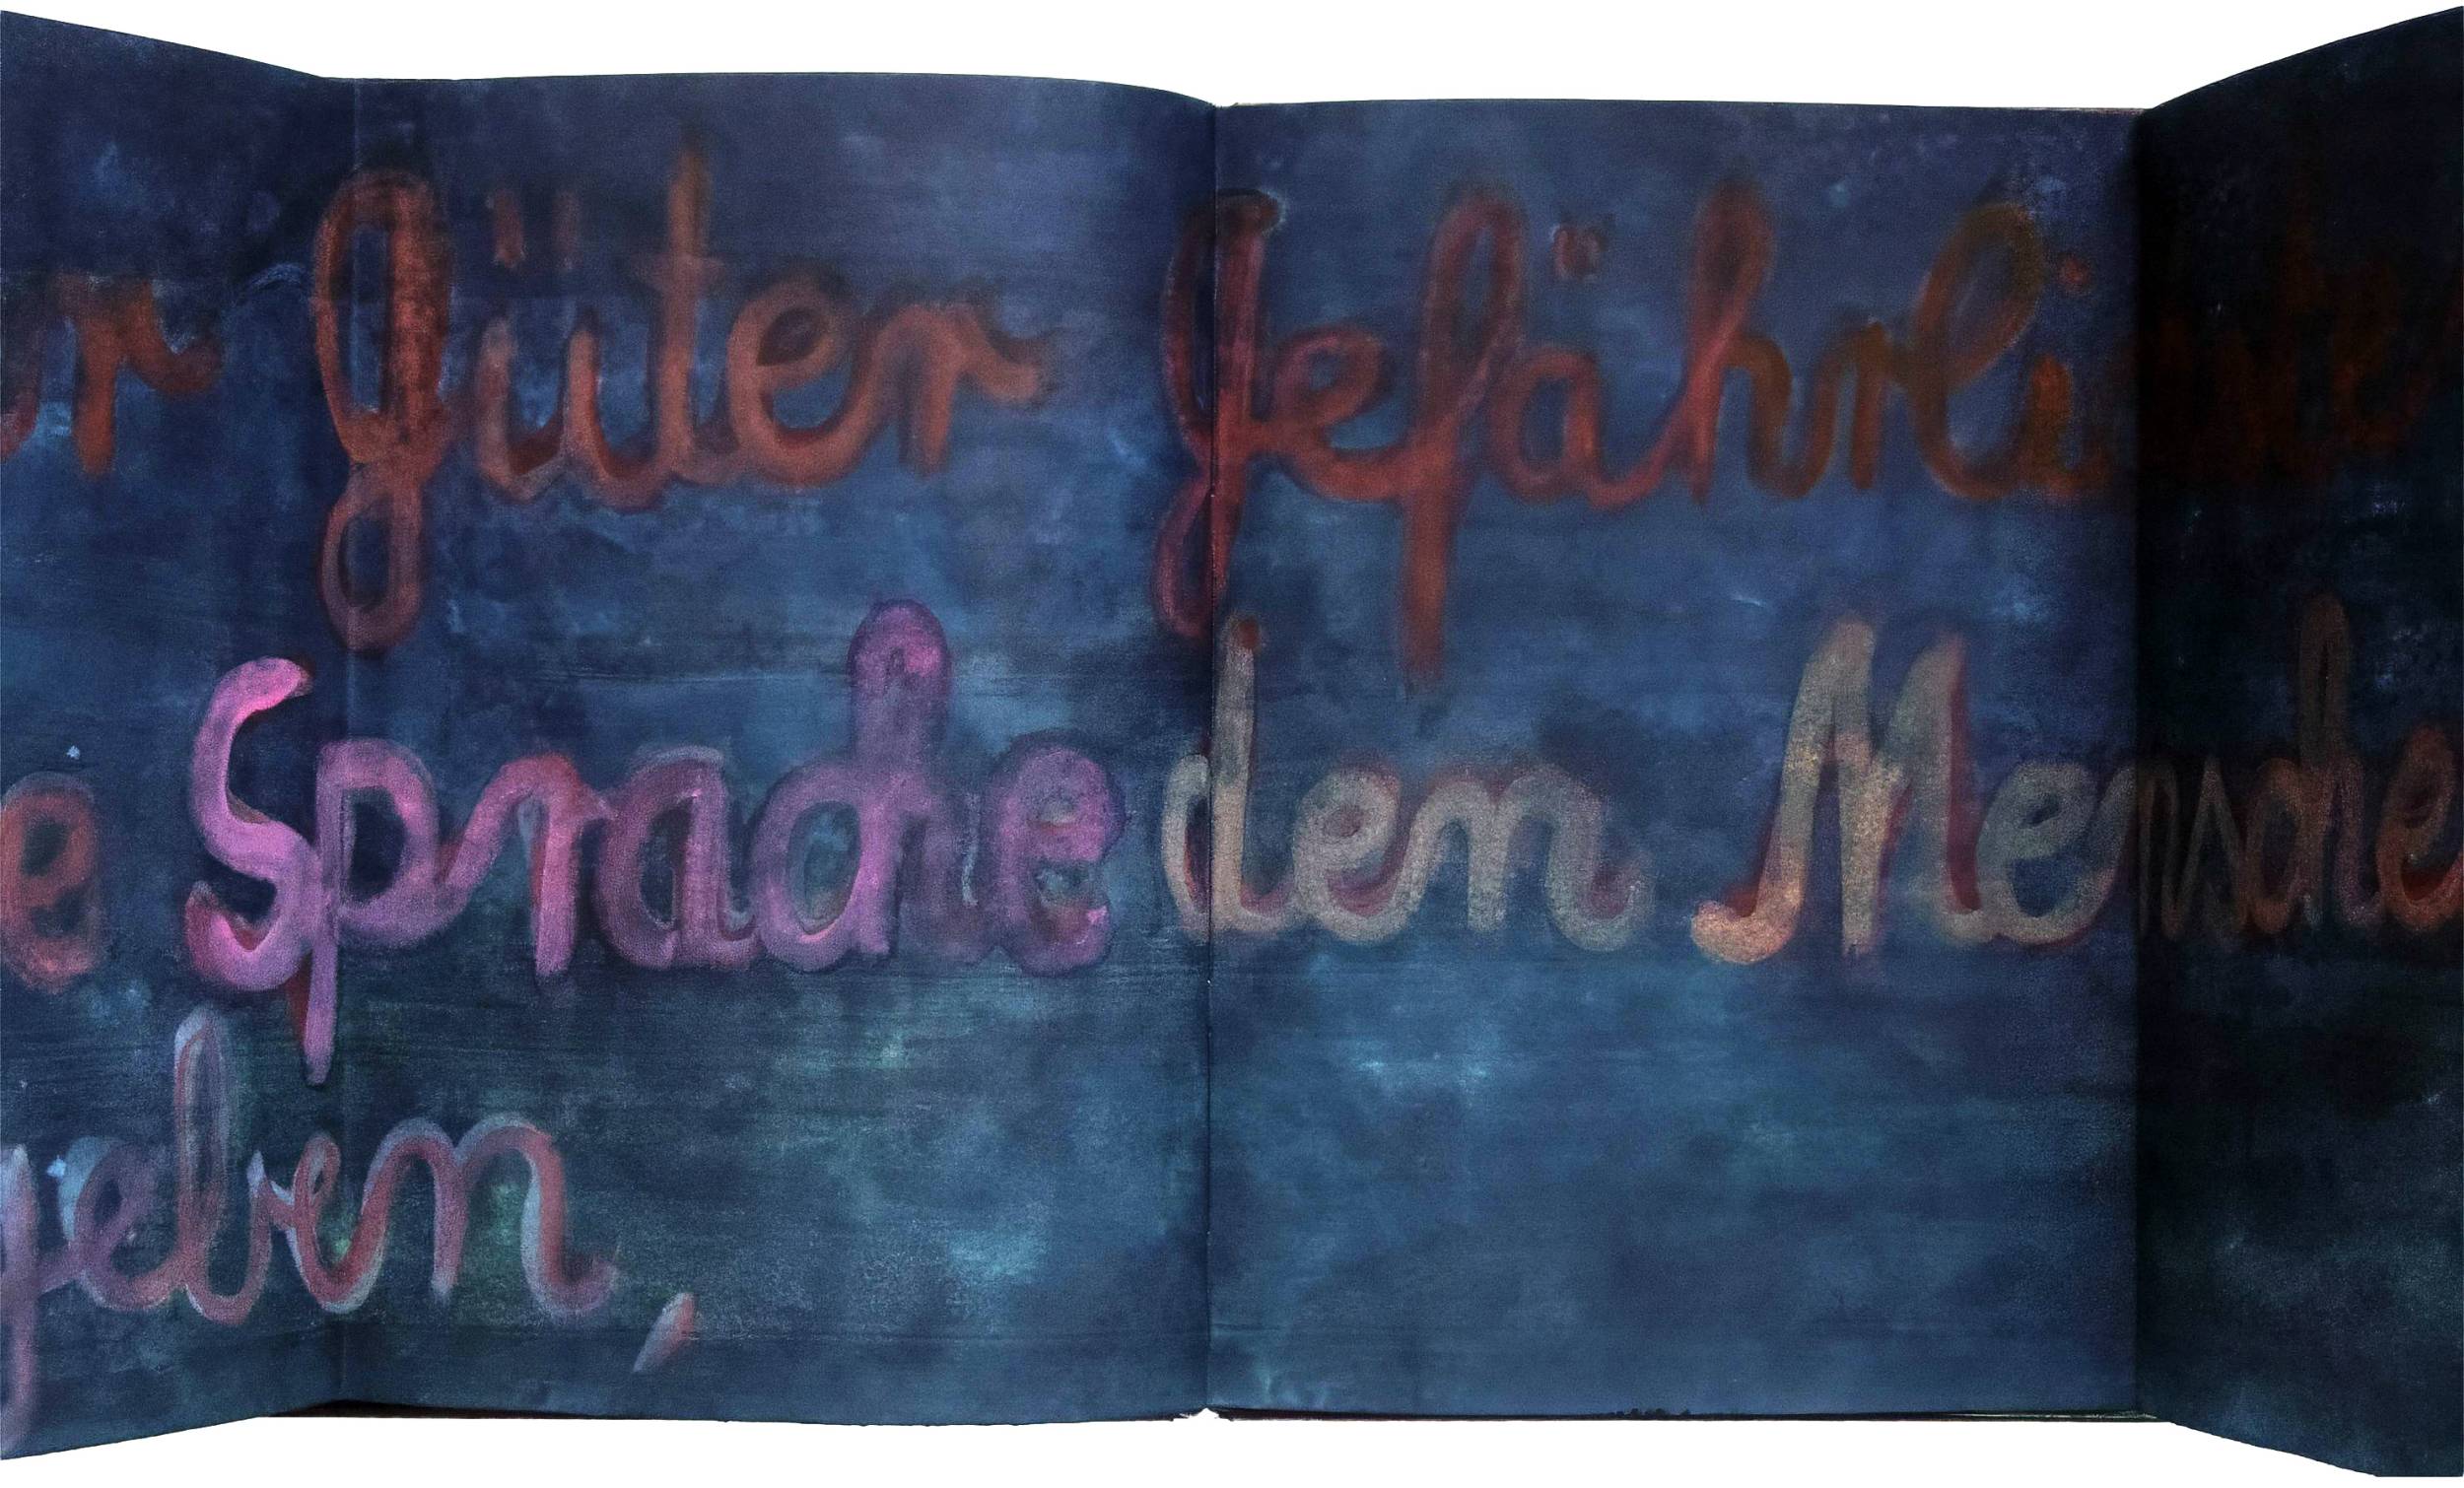 r Güter Gefährlichste
e Sprache dem Mensche
geben,